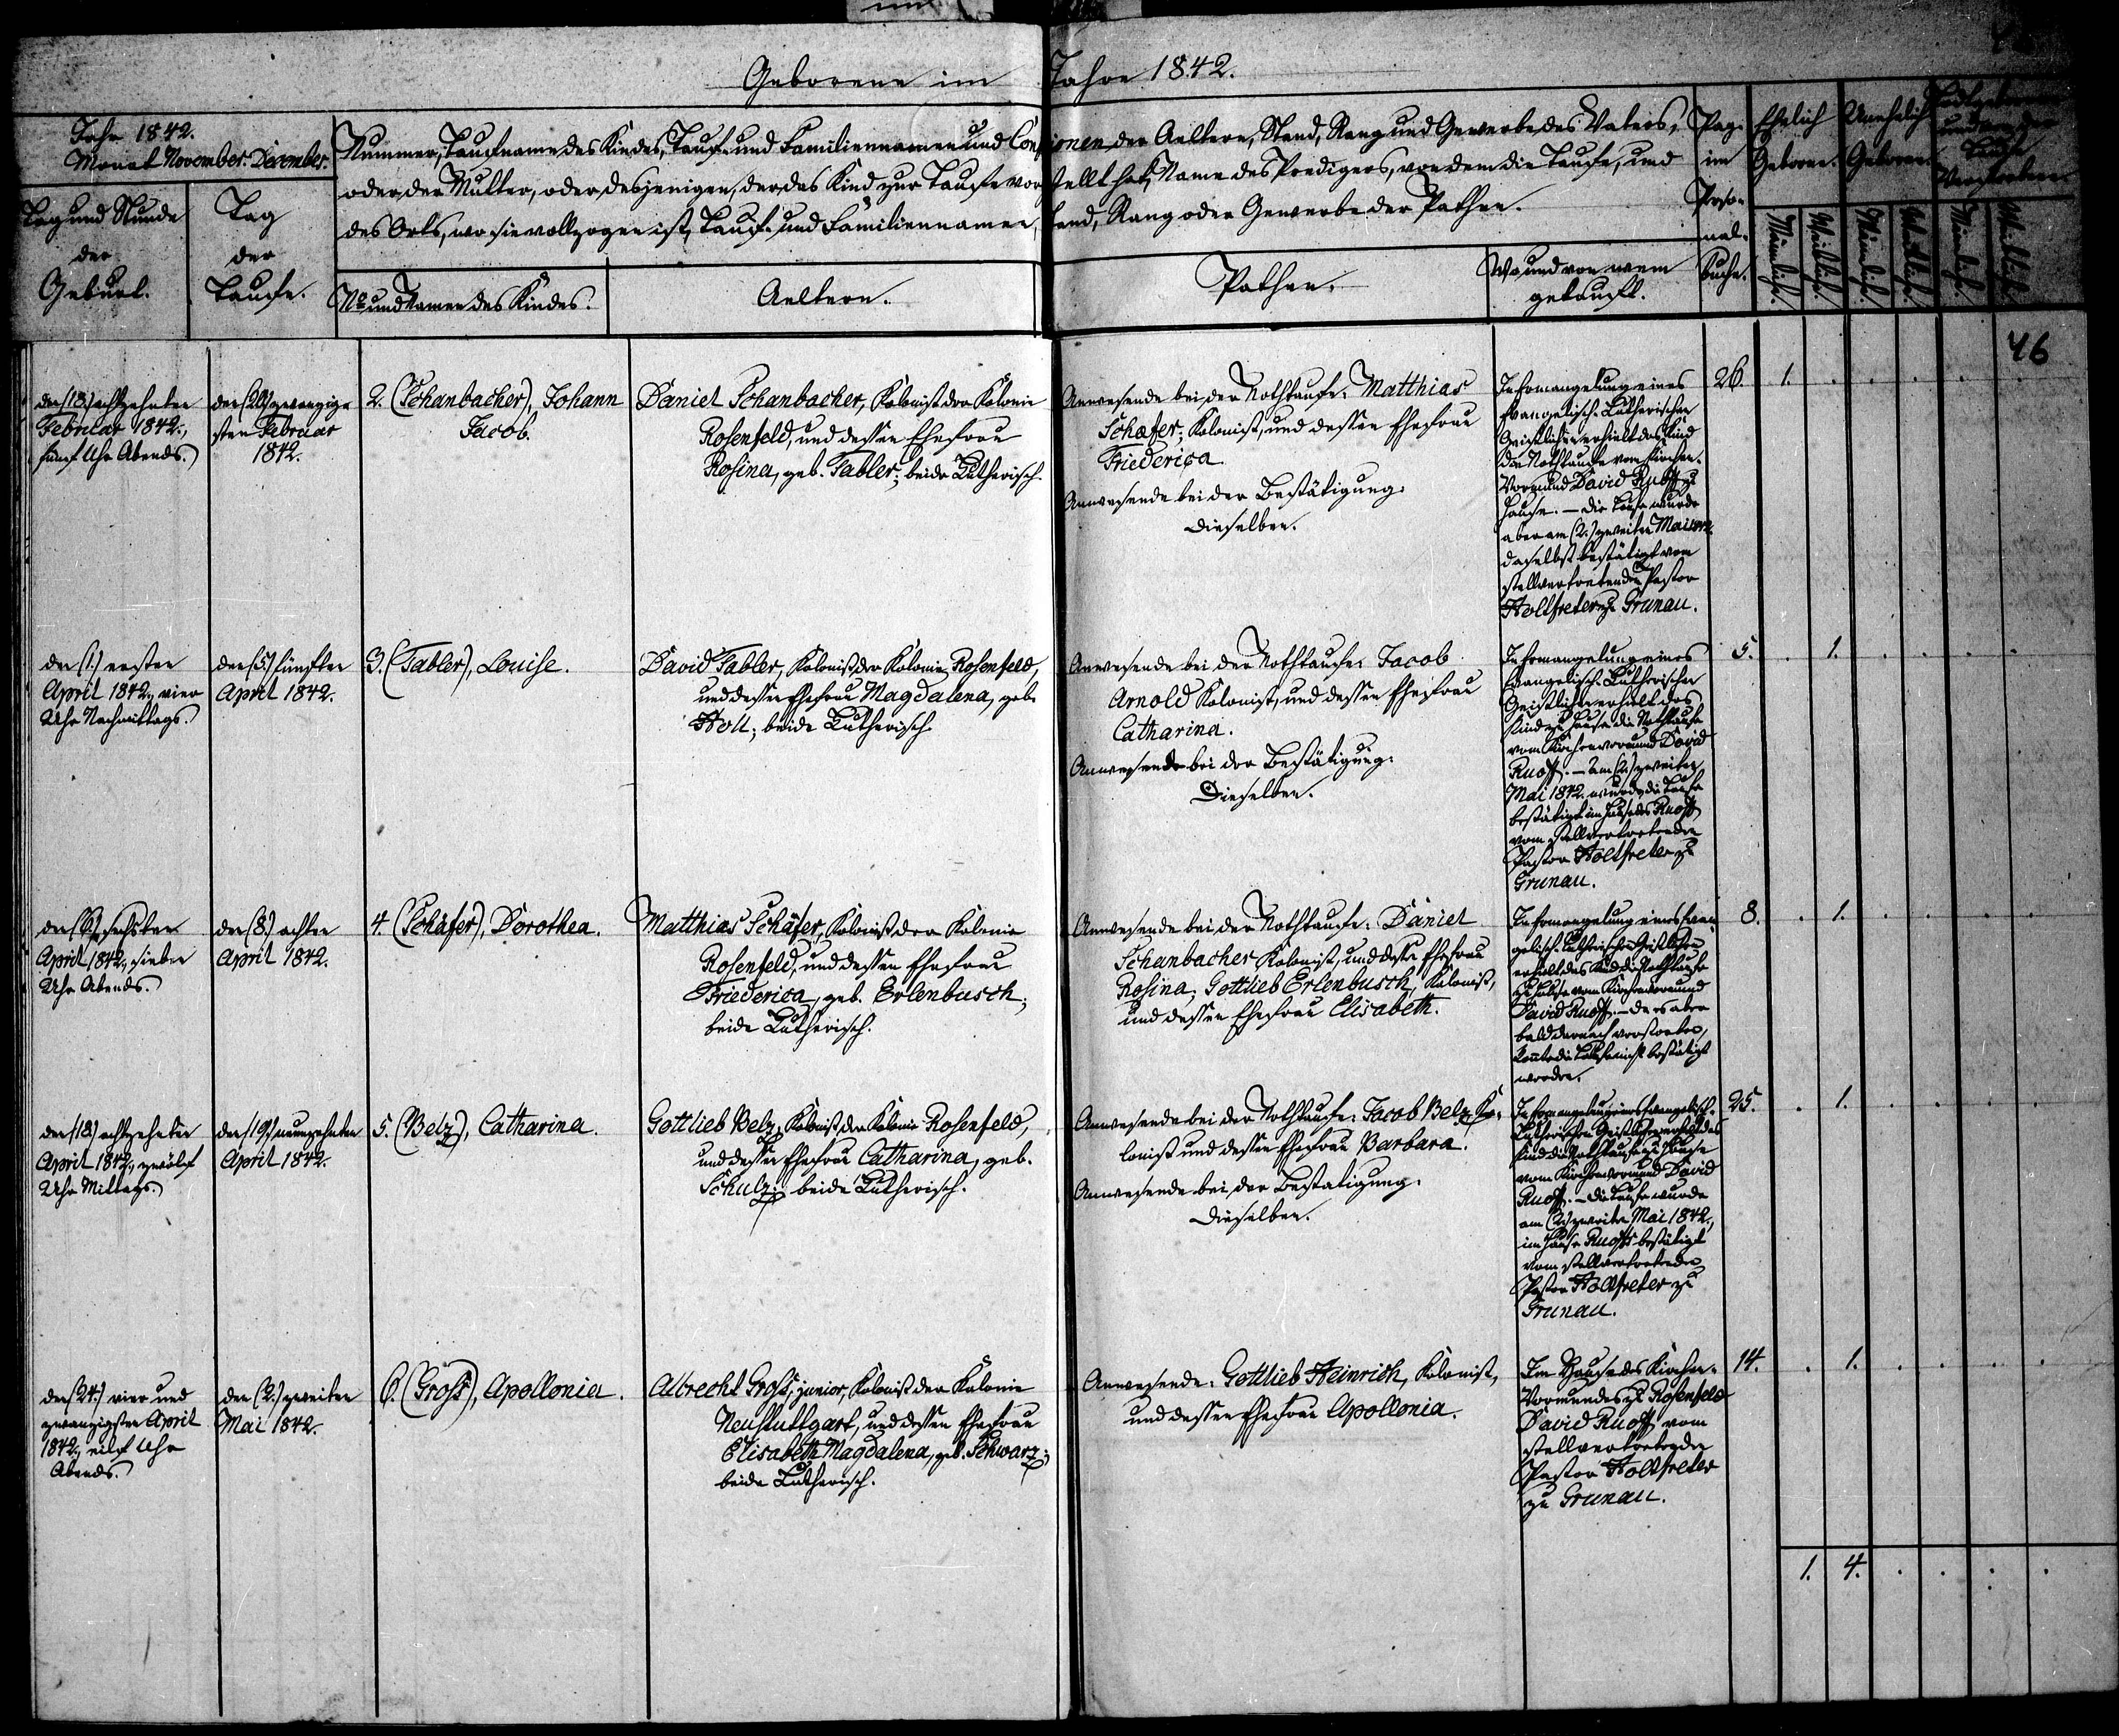 Geborene im Jahre 1842.
46
Jahr 1842.
Monat November. December.
Tag und Stunde
der
Geburt.
Tag
der
Taufe.
Nummer, Taufname des Kindes, Tauf- und Familiennamen und Confessionen der Aeltern, Stand, Rang und Gewerbe des Vaters,
oder der Mutter, oder desjenigen, der das Kind zur Taufe vorstellt hat, Name des Predigers, von dem die Taufe, und
des Orts, wo sie vollzogen ist, Tauf- und Familiennamen, Stand, Rang oder Gewerbe der Pathen.
No und Namen des Kindes.
Aeltern.
Pathen.
Wo und von wem
getauft.
Pag.
im
Perso-
nal-
buche.
Ehelich
Geborene.
Unehelich
Geborene.
Todtgeborene
und vor der
Taufe
Verstorbene.
Männlich.
Weiblich.
Männlich.
Weiblich.
Männlich.
Weiblich.
den (18.) achtzehnten
Februar 1842.,
fünf Uhr Abends.
den (20.) zwanzig-
sten Februar
1842.
2. (Schanbacher), Johann
Jacob.
Daniel Schanbacher, Kolonist der Kolonie
Rosenfeld, und dessen Ehefrau
Rosina, geb. Fabler; beide Lutherisch.
Anwesende bei der Nothtaufe: Matthias
Schäfer, Kolonist, und dessen Ehefrau
Friederica.
Anwesende bei der Bestätigung:
dieselben.
In Ermangelung eines
Evangelisch-Lutherischen
Geistlichen erhielt das Kind
die Nothtaufe vom Kirchen-
Vormund David Ruoff zu
Hause. – Die Taufe wurde
aber am (2.) zweiten Mai 1842.
daselbst bestätigt vom
stellvertretenden Pastor
Holtfreter zu Grunau.
26. 1. . . . . .
den (1.) ersten
April 1842., vier
Uhr Nachmittags.
den (5.) fünften
April 1842.
3. (Fabler), Louise.
David Fabler, Kolonist der Kolonie Rosenfeld,
und dessen Ehefrau Magdalena, geb.
Holl; beide Lutherisch.
Anwesende bei der Nothtaufe: Jacob
Arnold Kolonist, und dessen Ehefrau
Catharina.
Anwesende bei der Bestätigung:
Dieselben.
In Ermangelung eines
Evangelisch-Lutherischen
Geistlichen erhielt das
Kind zu Hause die Nothtaufe
vom Kirchenvormund David
Ruoff. – Am (2.) zweiten
Mai 1842. wurde die Taufe
bestätigt im Hause des Ruoff
vom stellvertretenden
Pastor Holtfreter zu
Grunau.
5. . 1. . . . .
den (6.) sechsten
April 1842., sieben
Uhr Abends.
den (8.) achten
April 1842.
4. (Schäfer), Dorothea.
Matthias Schäfer, Kolonist der Kolonie
Rosenfeld, und dessen Ehefrau
Friederica, geb. Erlenbusch;
beide Lutherisch.
Anwesende bei der Nothtaufe: Daniel
Schanbacher Kolonist, und dessen Ehefrau
Rosina; Gottlieb Erlenbusch, Kolonist,
und dessen Ehefrau Elisabeth.
In Ermangelung eines Evan-
gelisch-Lutherischen Geistlichen
erhielt das Kind die Nothtaufe
zu Hause vom Kirchenvormund
David Ruoff. – Da es aber
bald darnach verstorben,
konnte die Taufe nicht bestätigt
werden.
8. . 1. . . . .
den (18.) achtzehnten
April 1842., zwölf
Uhr Mittags.
den (19.) neunzehnten
April 1842.
5. (Belz), Catharina.
Gottlieb Belz, Kolonist der Kolonie Rosenfeld,
und dessen Ehefrau Catharina, geb.
Schulz; beide Lutherisch.
Anwesende bei der Nothtaufe: Jacob Belz, Ko-
lonist und dessen Ehefrau Barbara.
Anwesende bei der Bestatigung:
dieselben.
In Ermangelung eines Evangelisch-
Lutherischen Geistlichen erhielt das
Kind die Nothtaufe zu Hause
vom Kirchenvormund David
Ruoff. – Die Taufe wurde
am (2.) zweiten Mai 1842.,
im Hause Ruoffs bestätigt
vom stellvertretenden
Pastor Holtfreter zu
Grunau.
25. . 1. . . . .
den (24.) vier und
zwanzigsten April
1842., eilf Uhr
Abends.
den (2.) zweiten
Mai 1842.
6. (Groß), Apollonia.
Albrecht Groß, junior, Kolonist der Kolonie
Neustuttgart, und dessen Ehefrau
Elisabeth Magdalena, geb. Schwarz;
beide Lutherisch.
Anwesende: Gottlieb Heinrich, Kolonist,
und dessen Ehefrau Apollonia.
Im Hause des Kirchen-
Vormundes zu Rosenfeld
David Ruoff vom
stellvertretenden
Pastor Holtfreter
zu Grunau.
14. . 1. . . . .
1. 4. . . . .